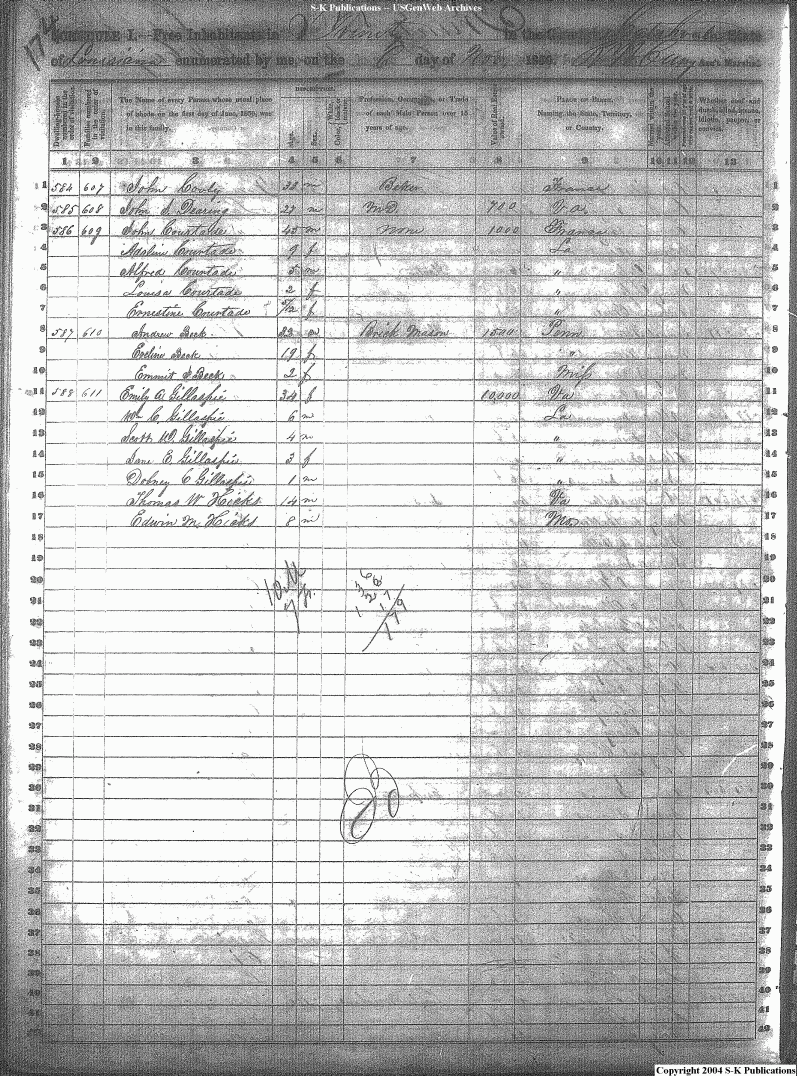 S-K Publications -- USGenWeb Archives
174
SCHEDULE I.—Free Inhabitants in in the County of State
of Louisiana enumerated by me, on the day of Nov 1850. Ass't Marshal.
DESCRIPTION.
Dwelling-houses numbered in the order of visitation.
Families numbered in the order of visitation.
The Name of every Person whose usual place of abode on the first day of June, 1850, was in this family.
Age.
Sex.
Color
Profession, Occupation, or Trade of each Male Person over 15 years of age.
Value of Real Estate owned.
PLACE OF BIRTH. Naming the State, Territory, or Country.
Whether deaf and dumb, blind, insane, idiotic, pauper, or convict.
1 2 3 4 5 6 7 8 9 10 11 12 13
1 584 607 John 38 m France 1
2 585 608 John S. Dearing 27 m MD 700 Va 2
3 586 609 John Courtade 45 m none 1000 France 3
4 Adaline Courtade 9 f La 4
5 Alfred Courtade 5 m " 5
6 Louisa Courtade 2 f " 6
7 Ernestine Courtade 5/12 f " 7
8 587 610 Andrew Beck 23 m Brick Mason 1500 Penn 8
9 Eveline Beck 19 f " 9
10 Emmit Beck 2 f Miss 10
11 588 611 Emily A Gillaspie 34 f 10,000 Va 11
12 Wm C. Gillaspie 6 m La 12
13 Scott W. Gillaspie 4 m " 13
14 Jane E Gillaspie 3 f " 14
15 Dobney C Gillaspie 1 m " 15
16 Thomas W Hicks 14 m Va 16
17 Edwin M. Hicks 8 m Mo 17
18 18
19 19
20 20
21 21
22 22
23 23
24 24
25 25
26 26
27 27
28 28
29 29
30 30
31 31
32 32
33 33
34 34
35 35
36 36
37 37
38 38
39 39
40 40
41 41
42 42
10 M
7 f.
179
Copyright 2004 S-K Publications